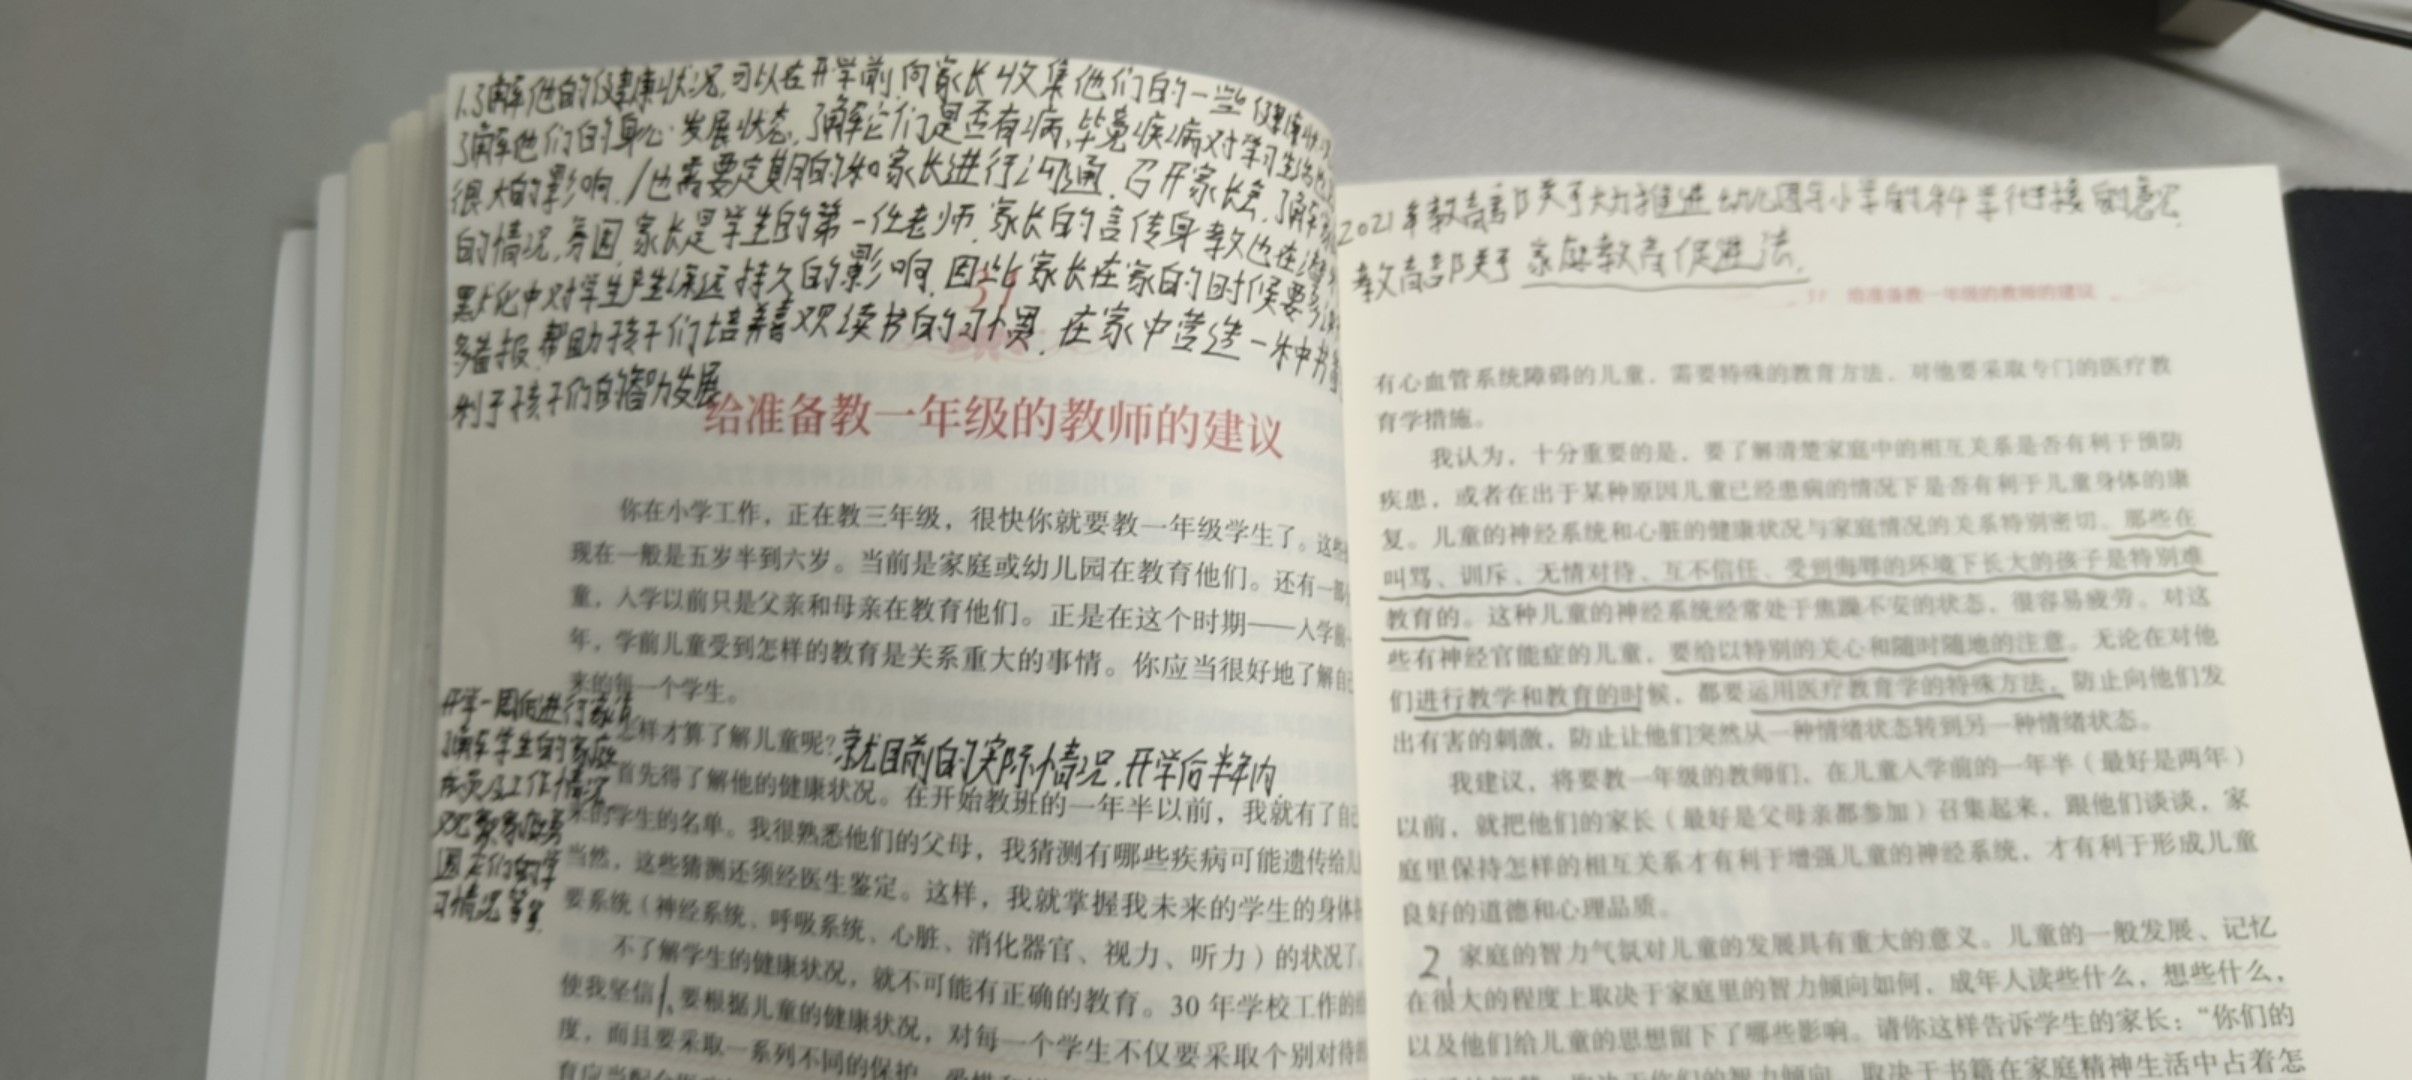 1.了解他的健康状况,可以在开学前向家长收集他们的一些健康状况
了解他们的身心发展状态,了解它们是否有病,毕竟疾病对学习生活
很大的影响/也需要定期的和家长进行沟通,召开家长会,了解
的情况,旁因,家长是学生的第一任老师,家长的言传身教也在
默化中对学生产生深远持久的影响,因此家长在家的时候要多
多看报,帮助孩子们培养喜欢读书的习惯,在家中营造一种书
利于孩子们的智力发展
31
给准备教一年级的教师的建议
你在小学工作,正在教三年级,很快你就要教一年级学生了。这些
现在一般是五岁半到六岁。当前是家庭或幼儿园在教育他们。还有一部
童,入学以前只是父亲和母亲在教育他们。正是在这个时期——入学前
年,学前儿童受到怎样的教育是关系重大的事情。你应当很好地了解自
来的每一个学生。
怎样才算了解儿童呢?就目前的实际情况,开学后半年内,
首先得了解他的健康状况。在开始教班的一年半以前,我就有了自
来的学生的名单。我很熟悉他们的父母,我猜测有哪些疾病可能遗传给儿
当然,这些猜测还须经医生鉴定。这样,我就掌握我未来的学生的身体
要系统(神经系统、呼吸系统、心脏、消化器官、视力、听力)的状况了
不了解学生的健康状况,就不可能有正确的教育。30 年学校工作的
使我坚信1、要根据儿童的健康状况,对每一个学生不仅要采取个别对待
度,而且要采取一系列不同的保护
开学一周后进行家访
了解学生的家庭
成员及工作情况
观察家庭氛
围它们的学
习情况等等.
2021年教育部关于大力推进幼儿园与小学的科学衔接的意见
教育部关于 家庭教育促进法.
31 给准备教一年级的教师的建议
有心血管系统障碍的儿童,需要特殊的教育方法,对他要采取专门的医疗教
育学措施。
我认为,十分重要的是,要了解清楚家庭中的相互关系是否有利于预防
疾患,或者在出于某种原因儿童已经患病的情况下是否有利于儿童身体的康
复。儿童的神经系统和心脏的健康状况与家庭情况的关系特别密切。那些在
叫骂、训斥、无情对待、互不信任、受到侮辱的环境下长大的孩子是特别难
教育的。这种儿童的神经系统经常处于焦躁不安的状态,很容易疲劳。对这
些有神经官能症的儿童,要给以特别的关心和随时随地的注意。无论在对他
们进行教学和教育的时候,都要运用医疗教育学的特殊方法,防止向他们发
出有害的刺激,防止让他们突然从一种情绪状态转到另一种情绪状态。
我建议,将要教一年级的教师们,在儿童入学前的一年半(最好是两年)
以前,就把他们的家长(最好是父母亲都参加)召集起来,跟他们谈谈,家
庭里保持怎样的相互关系才有利于增强儿童的神经系统,才有利于形成儿童
良好的道德和心理品质。
2、家庭的智力气氛对儿童的发展具有重大的意义。儿童的一般发展、记忆
在很大的程度上取决于家庭里的智力倾向如何,成年人读些什么,想些什么,
以及他们给儿童的思想留下了哪些影响。请你这样告诉学生的家长:“你们的
取决于你们的智力倾向,取决于书籍在家庭精神生活中占着怎